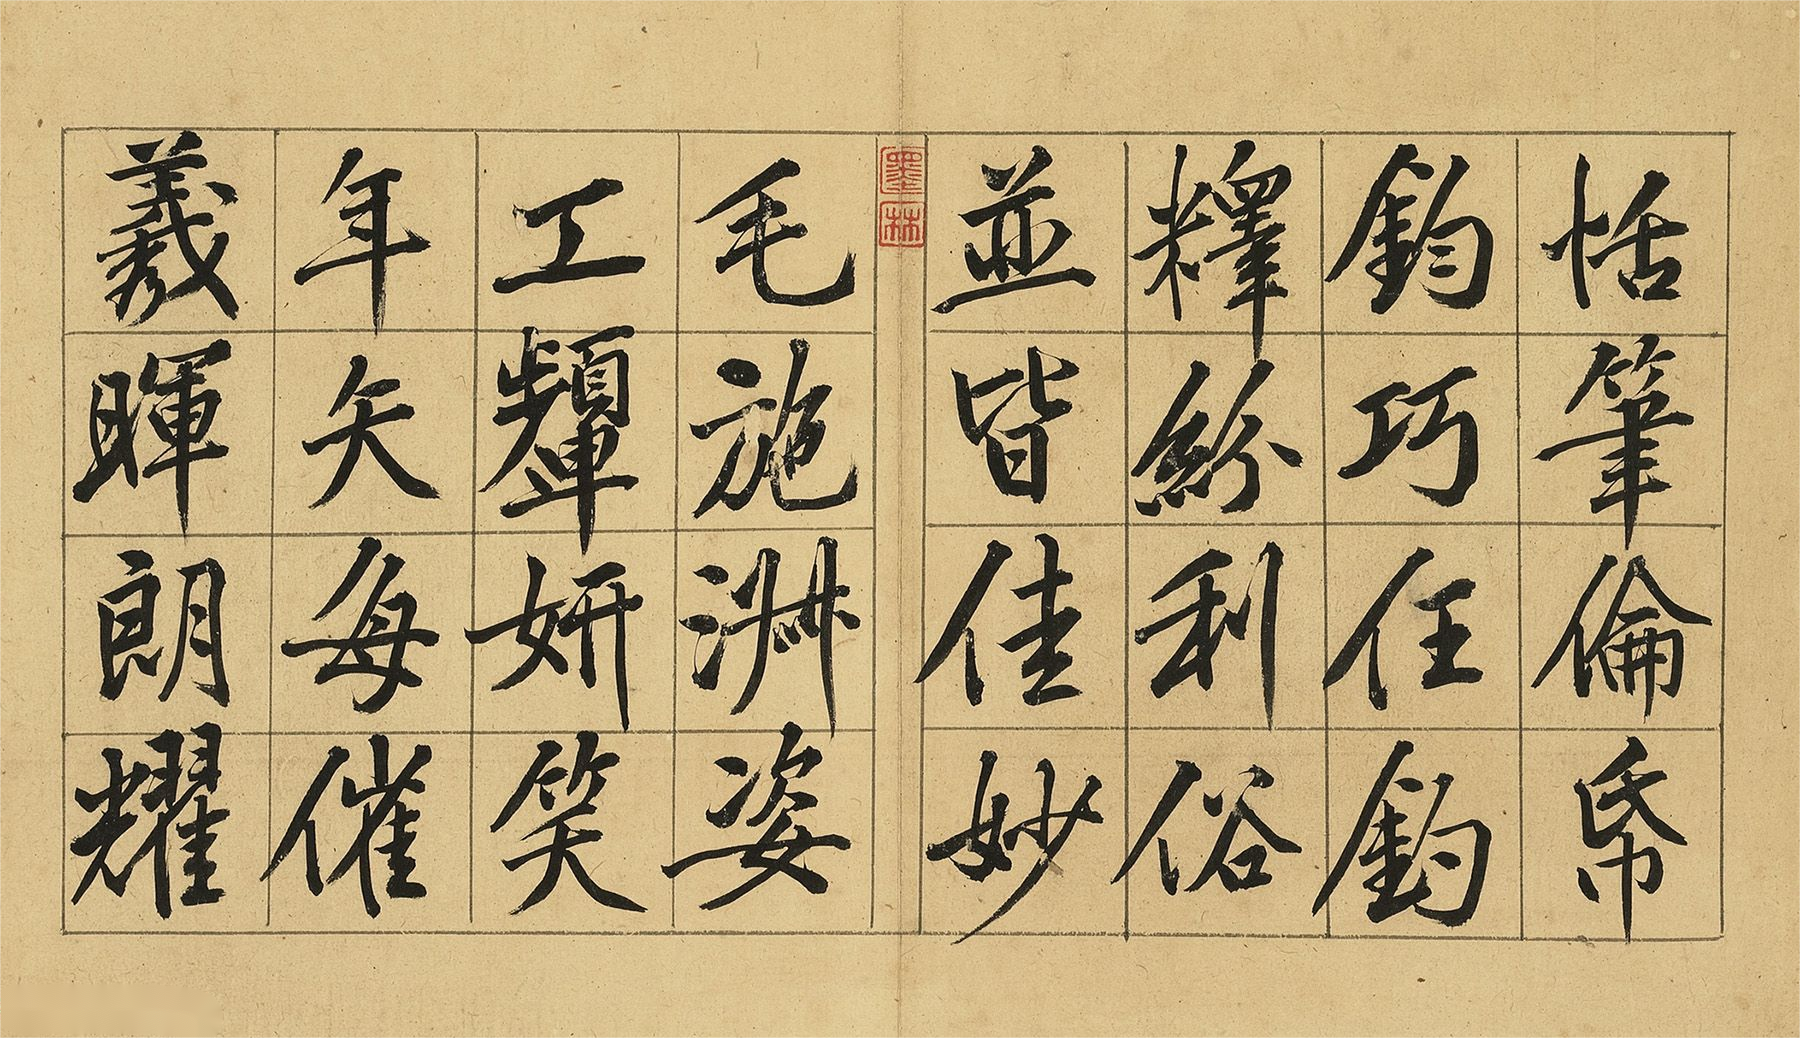 恬筆倫帋
鈞巧任鈞
釋紛利俗
並皆佳妙
毛施淑姿
工顰妍笑
年矢每催
羲暉朗耀
墨林